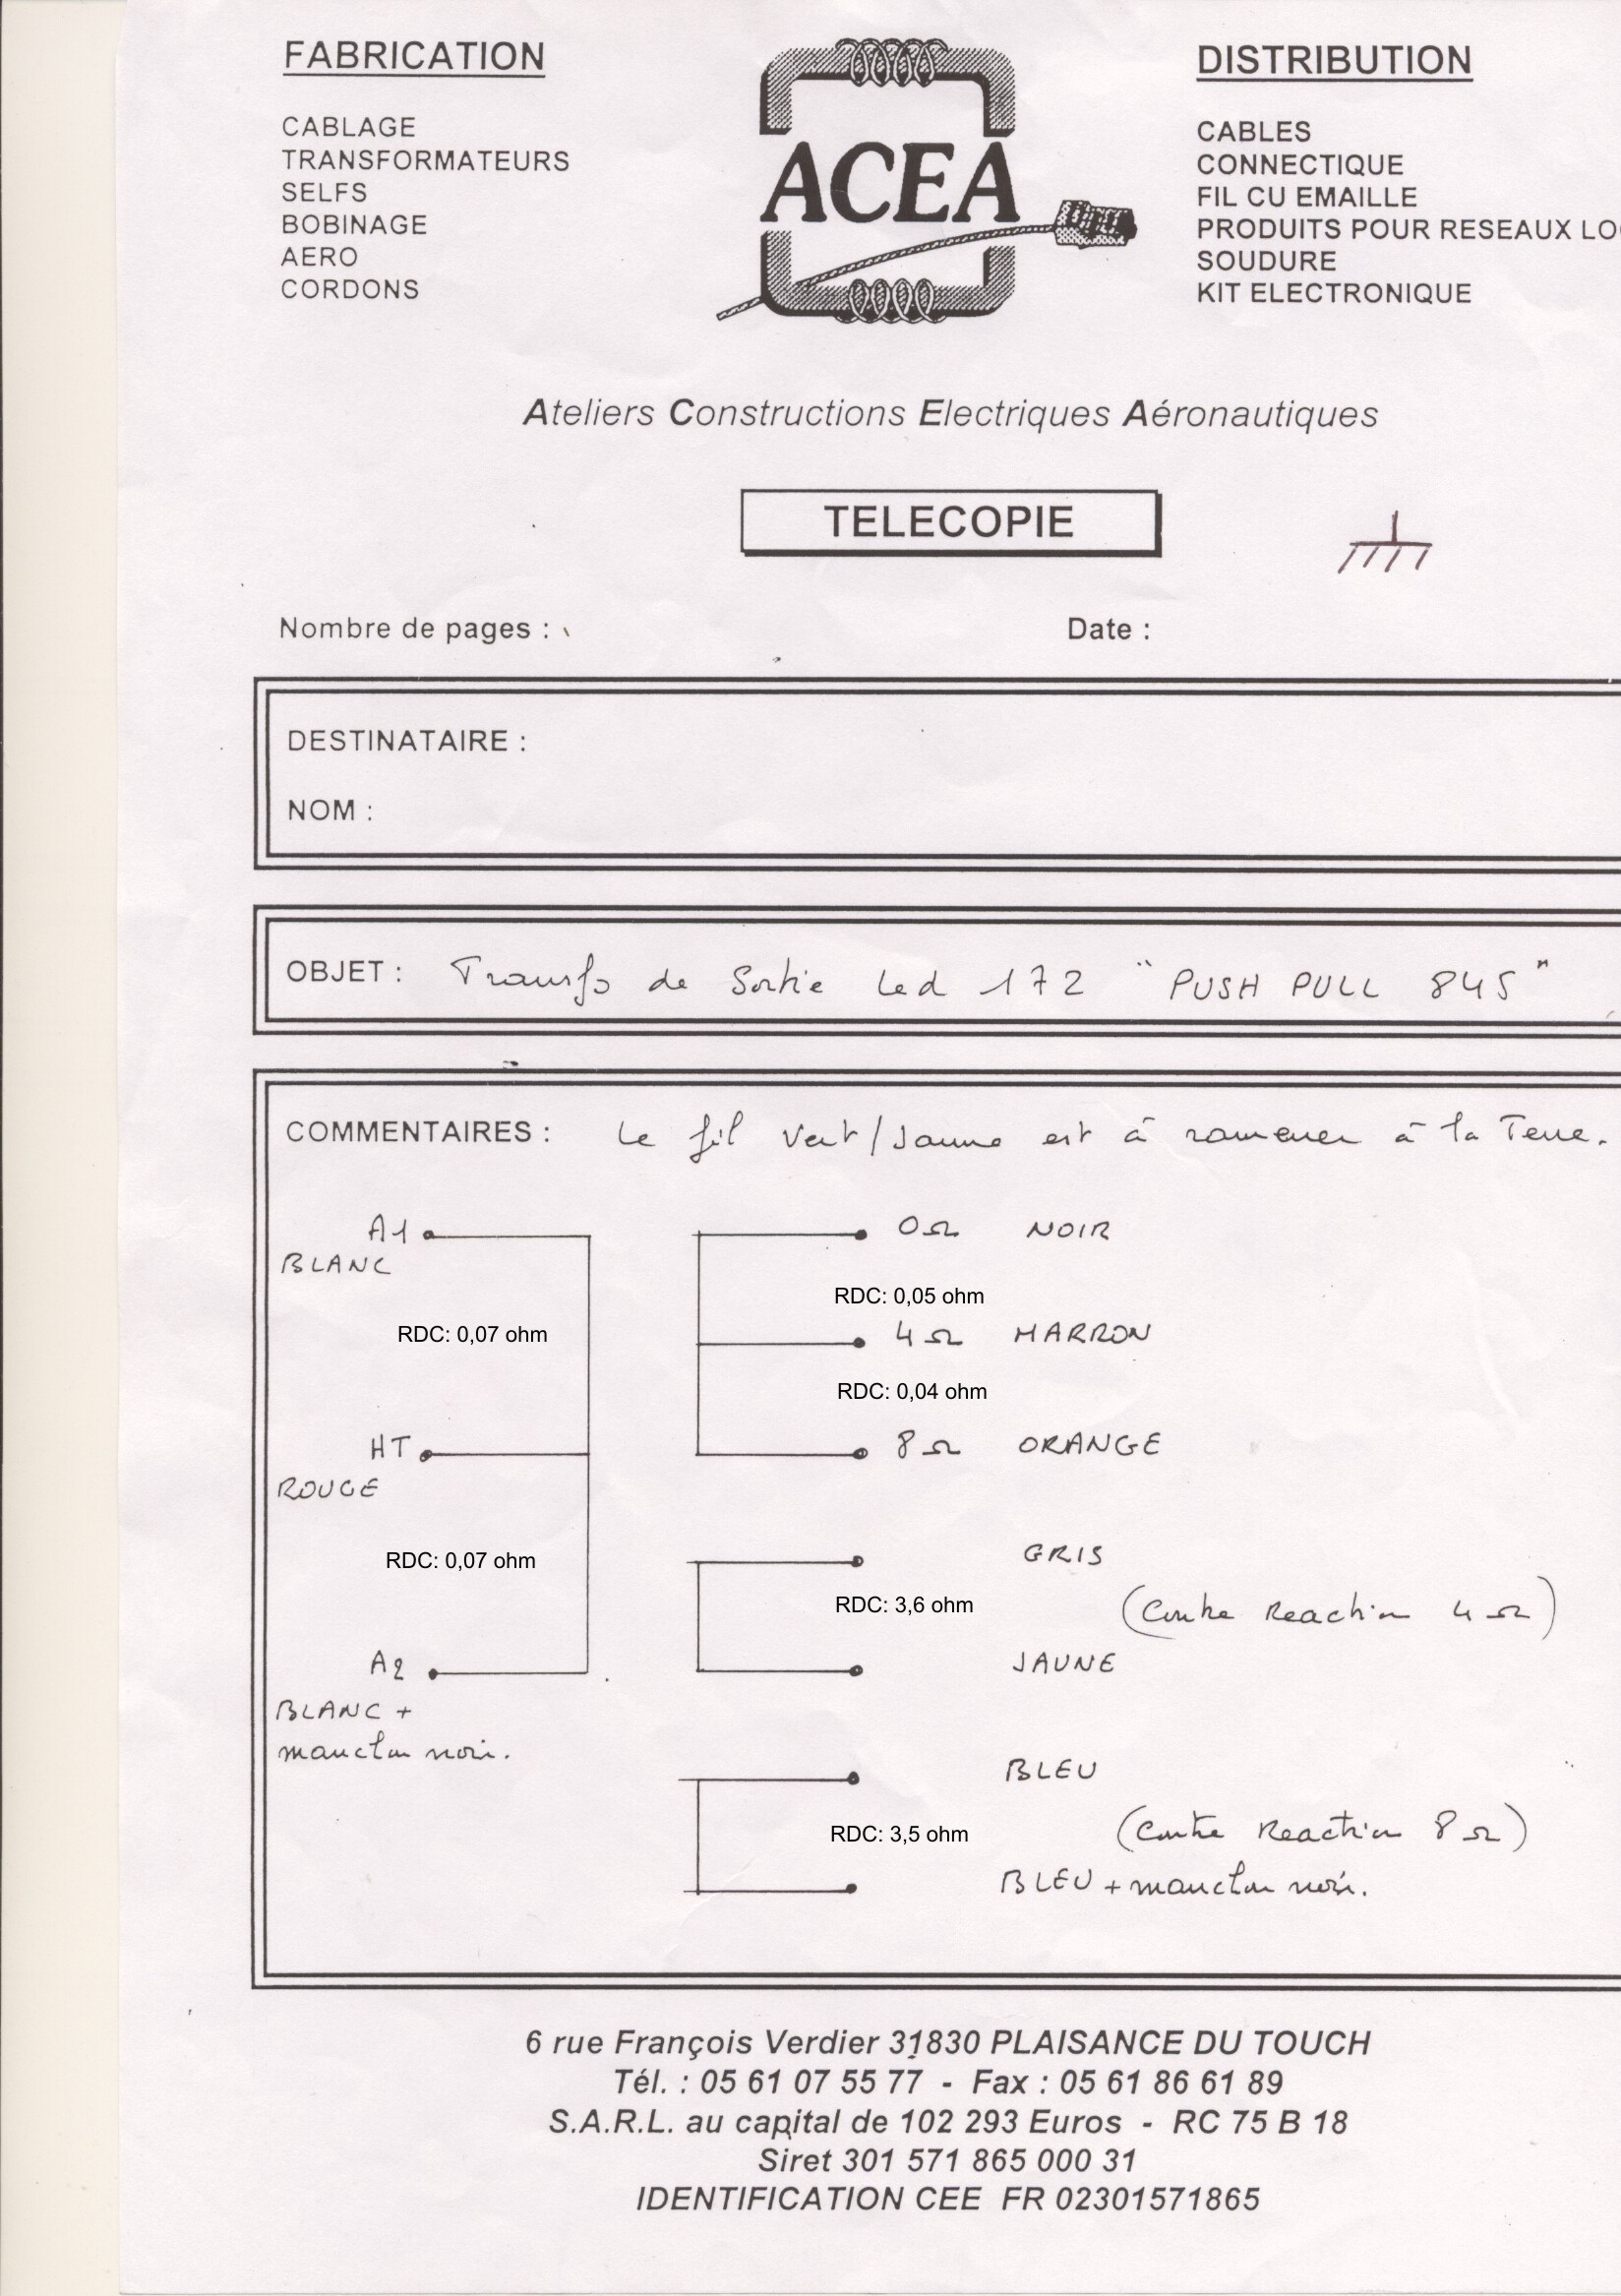 FABRICATION
CABLAGE
TRANSFORMATEURS
SELFS
BOBINAGE
AERO
CORDONS
ACEA
DISTRIBUTION
CABLES
CONNECTIQUE
FIL CU EMAILLE
PRODUITS POUR RESEAUX LO
SOUDURE
KIT ELECTRONIQUE
Ateliers Constructions Electriques Aéronautiques
TELECOPIE
Nombre de pages :
Date :
DESTINATAIRE :
NOM :
OBJET : Transfo de Sortie Led 172 "PUSH PULL 845"
COMMENTAIRES : Le fil Vert/Jaune est à ramener à la Terre.
A1
BLANC
RDC: 0,07 ohm
HT
ROUGE
RDC: 0,07 ohm
A2
BLANC +
manchon noir.
0Ω NOIR
RDC: 0,05 ohm
4Ω MARRON
RDC: 0,04 ohm
8Ω ORANGE
GRIS
RDC: 3,6 ohm
(Contre Reaction 4Ω)
JAUNE
BLEU
RDC: 3,5 ohm
(Contre Reaction 8Ω)
BLEU + manchon noir.
6 rue François Verdier 31830 PLAISANCE DU TOUCH
Tél. : 05 61 07 55 77 - Fax : 05 61 86 61 89
S.A.R.L. au capital de 102 293 Euros - RC 75 B 18
Siret 301 571 865 000 31
IDENTIFICATION CEE FR 02301571865